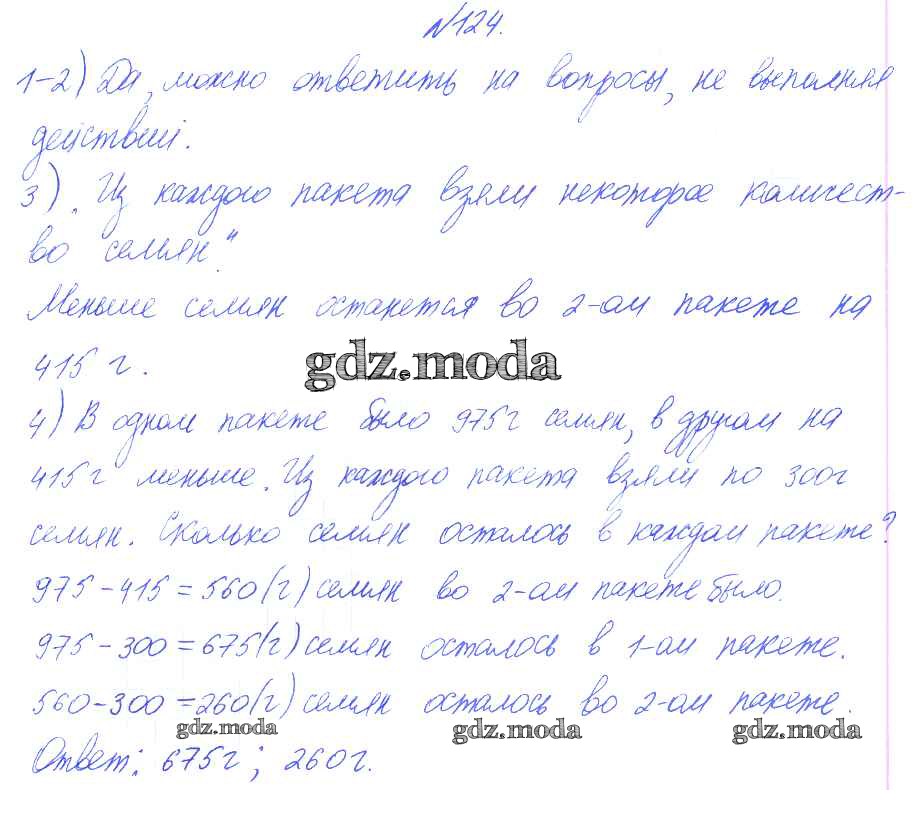 №124.
1-2) Да, можно ответить на вопросы, не выполняя
действий.
3) „Из каждого пакета взяли некоторое количест-
во семян".
Меньше семян останется во 2-ом пакете на
415 г.
gdz.moda
4) В одном пакете было 975г семян, в другом на
415г меньше. Из каждого пакета взяли по 300г
семян. Сколько семян осталось в каждом пакете?
975-415=560(г) семян во 2-ом пакете было.
975-300=675(г) семян осталось в 1-ом пакете.
560-300=260(г) семян осталось во 2-ом пакете.
gdz.moda gdz.moda gdz.moda
Ответ: 675г; 260г.